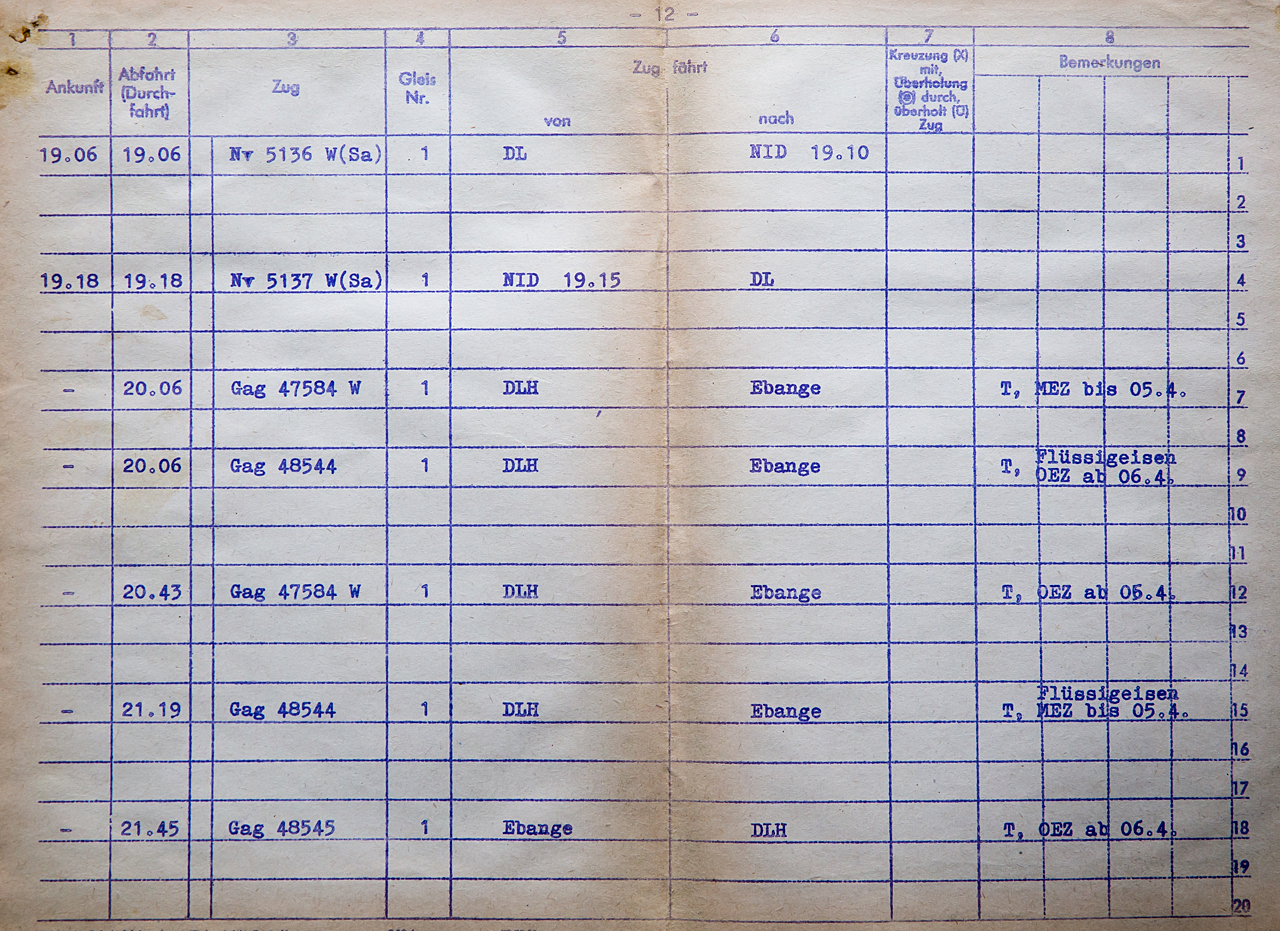 - 12 -
1 2 3 4 5 6 7 8
Ankunft
Abfahrt
(Durch-
fahrt)
Zug
Gleis
Nr.
Zug fährt
von
nach
Kreuzung (X)
mit,
Überholung
durch,
überholt (Ü)
Zug
Bemerkungen
19.06 19.06 Nr 5136 W(Sa) 1 DL NID 19.10 1
2
3
19.18 19.18 Nr 5137 W(Sa) 1 NID 19.15 DL 4
5
6
- 20.06 Gag 47584 W 1 DLH Ebange T, MEZ bis 05.4. 7
8
Flüssigeisen
- 20.06 Gag 48544 1 DLH Ebange T, OEZ ab 06.4. 9
10
11
- 20.43 Gag 47584 W 1 DLH Ebange T, OEZ ab 06.4. 12
13
14
Flüssigeisen
- 21.19 Gag 48544 1 DLH Ebange T, MEZ bis 05.4. 15
16
17
- 21.45 Gag 48545 1 Ebange DLH T, OEZ ab 06.4. 18
19
20